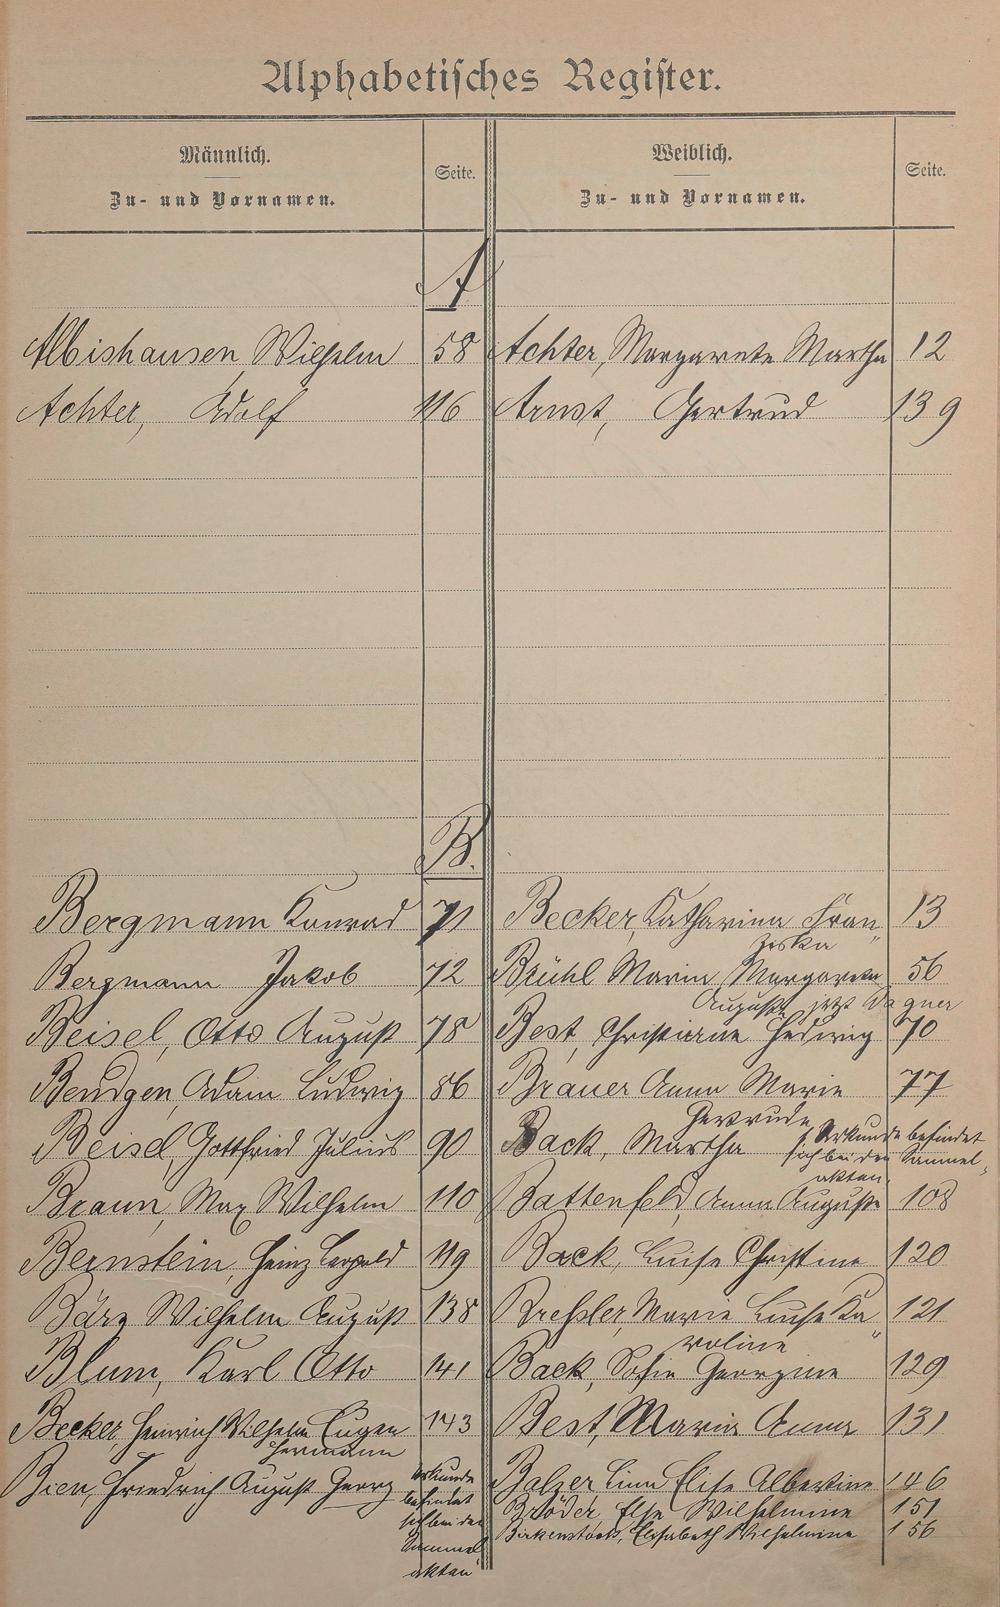 Alphabetisches Register.
Männlich.
Zu- und Vornamen.
Seite.
Weiblich.
Zu- und Vornamen.
Seite.
A
Albishausen, Wilhelm 58
Achter, Margarete Martha 12
Achter, Adolf 116
Arnst, Gertrud 139
B.
Bergmann Konrad 71
Becker, Katharina Fran„ 13
ziska
Bergmann Jakob 72
Brühl Maria Margareta 56
Auguste jetzt Wagner
Beisel, Otto August 78
Best, Christiane Hedwig 70
Bendgen, Adam Ludwig 86
Brauer Anna Marie 77
Gertrude
Beisel, Gottfried Julius 90
Back, Martha
Urkunde befindet
sich bei den Sammel„
akten.
Braun, Max Wilhelm 110
Battenfeld, Anna Auguste 108
Bernstein, Heinz Leopold 119
Back, Luise Christine 120
Bärz Wilhelm August 138
Breßler, Marie Luise Ka„ 121
roline
Blum, Karl Otto 141
Back, Sofie Georgine 129
Becker, Heinrich Wilhelm Eugen 143
Hermann
Best, Maria Anna 131
Bien, Friedrich August Georg
Urkunde
befindet
sich bei den
Sammel
akten
Balzer Lina Elise Albertine 146
Bröder, Else Wilhelmine 151
Birkenstock, Elisabeth Wilhelmine 156